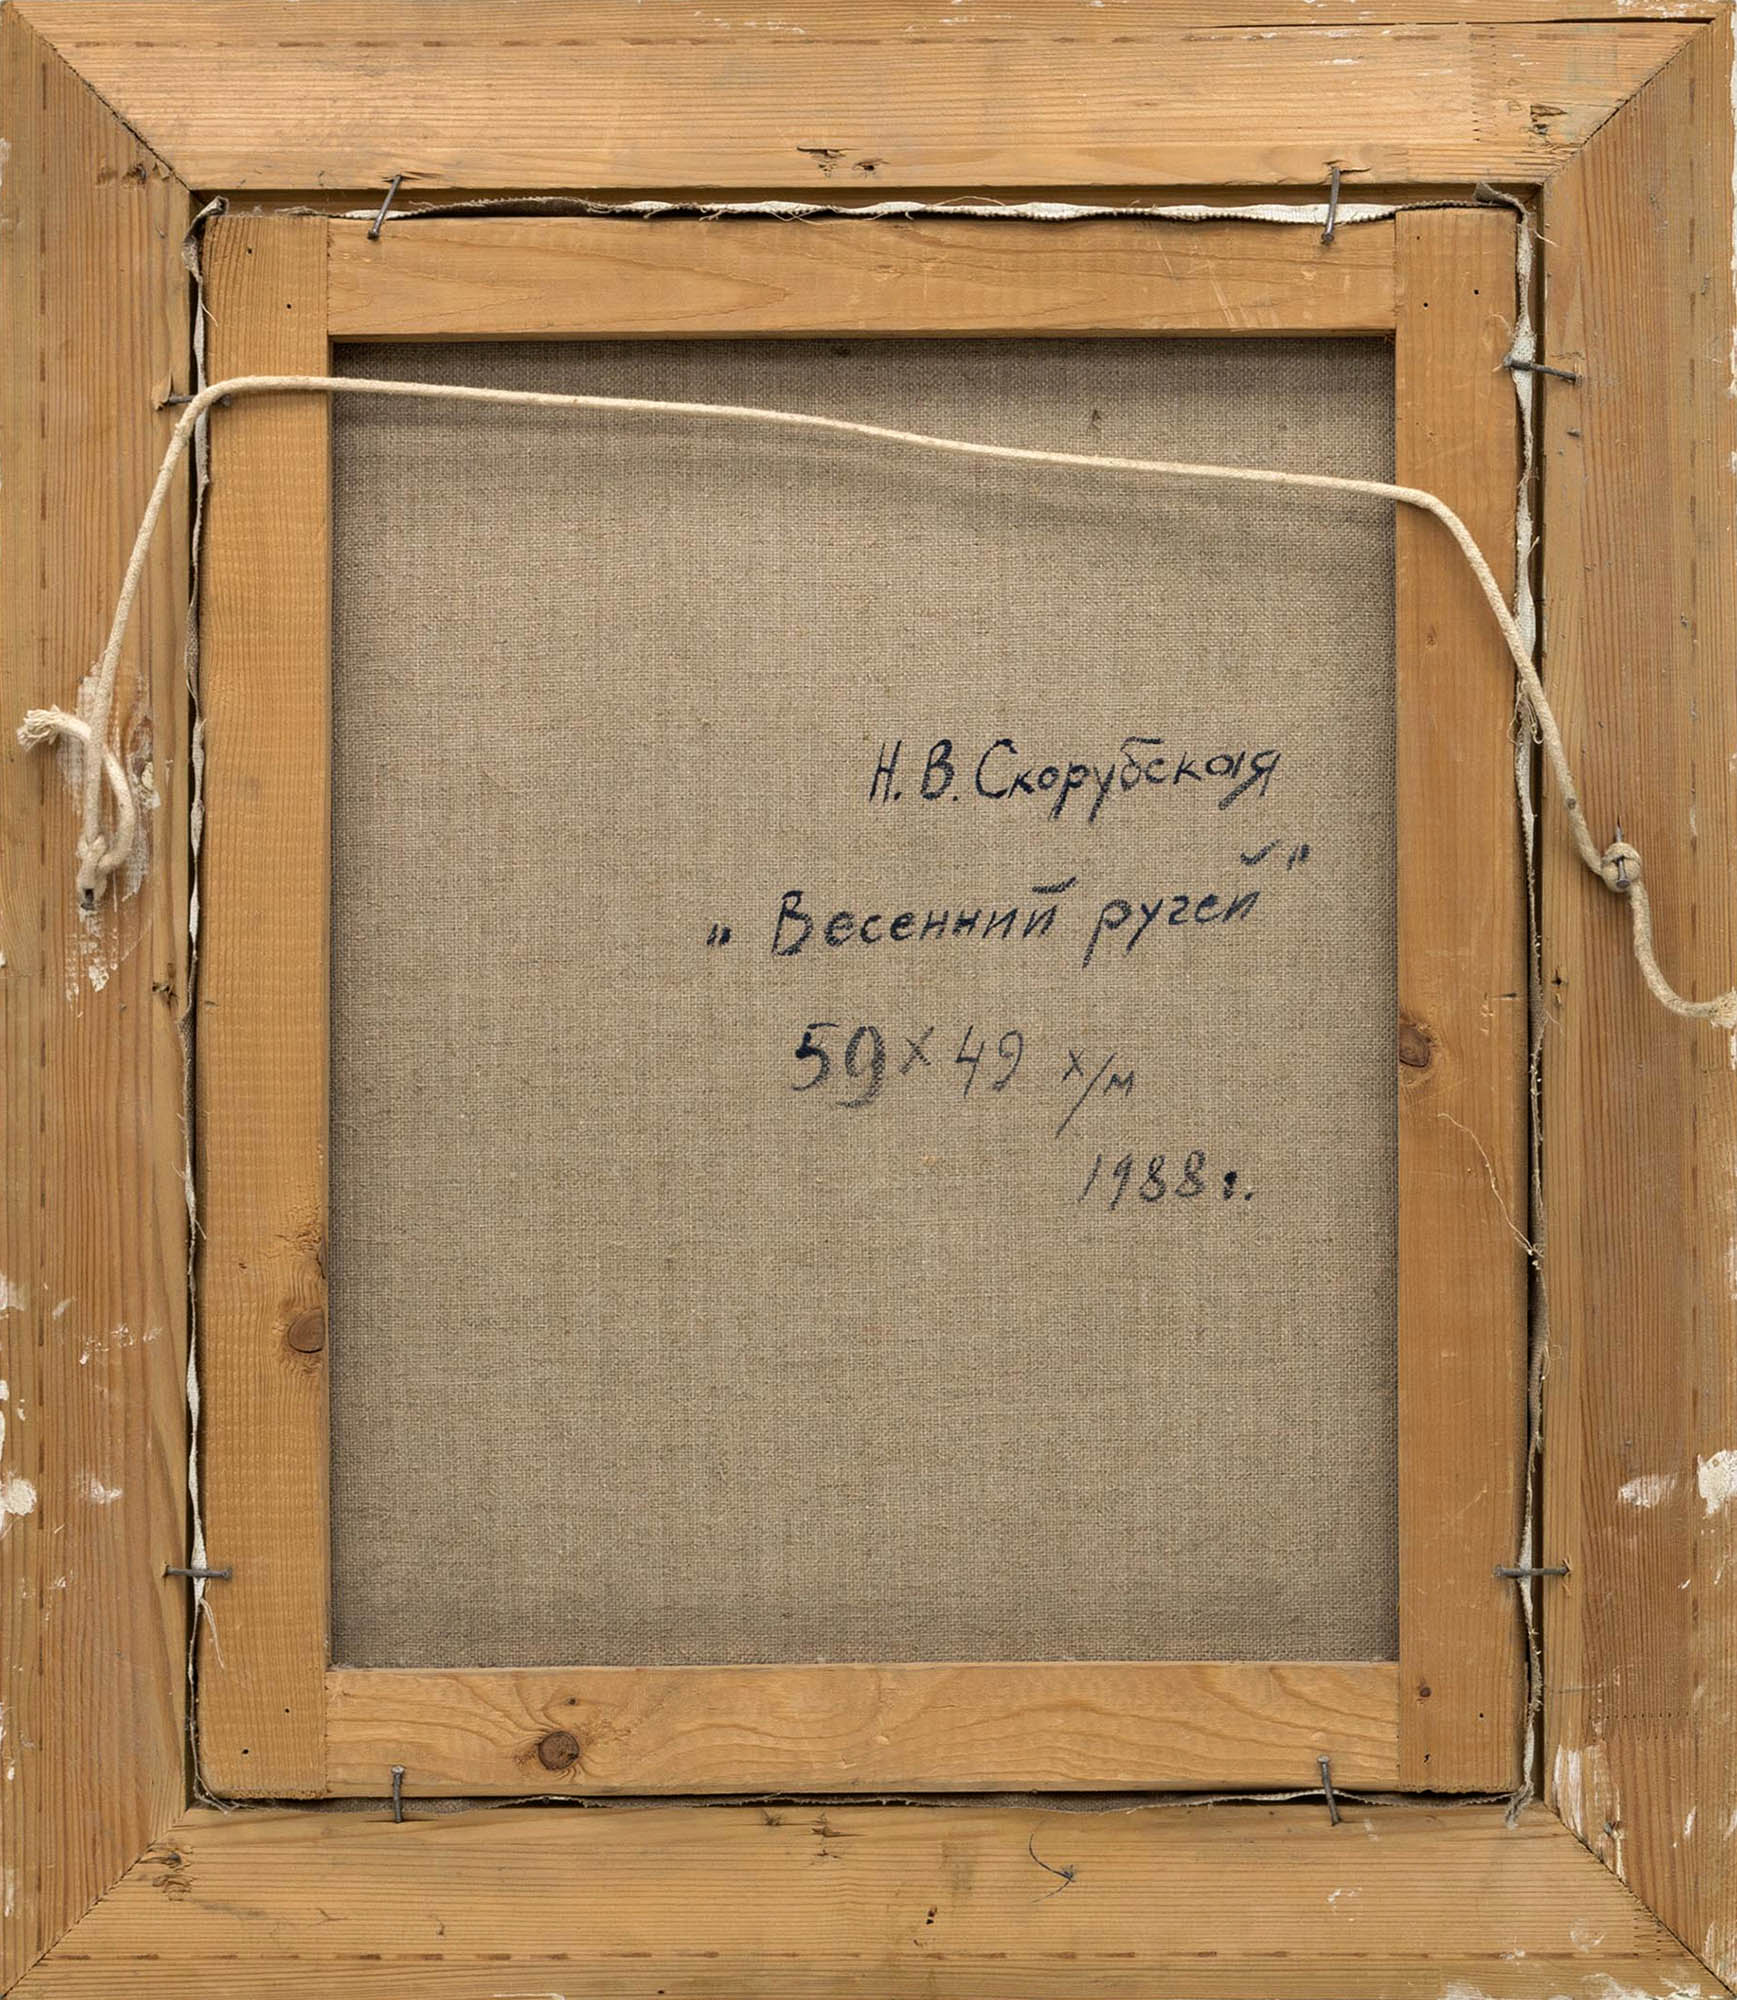 Н. В. Скорубская
„ Весенний ручей "
59 х 49 х/м
1988 г.